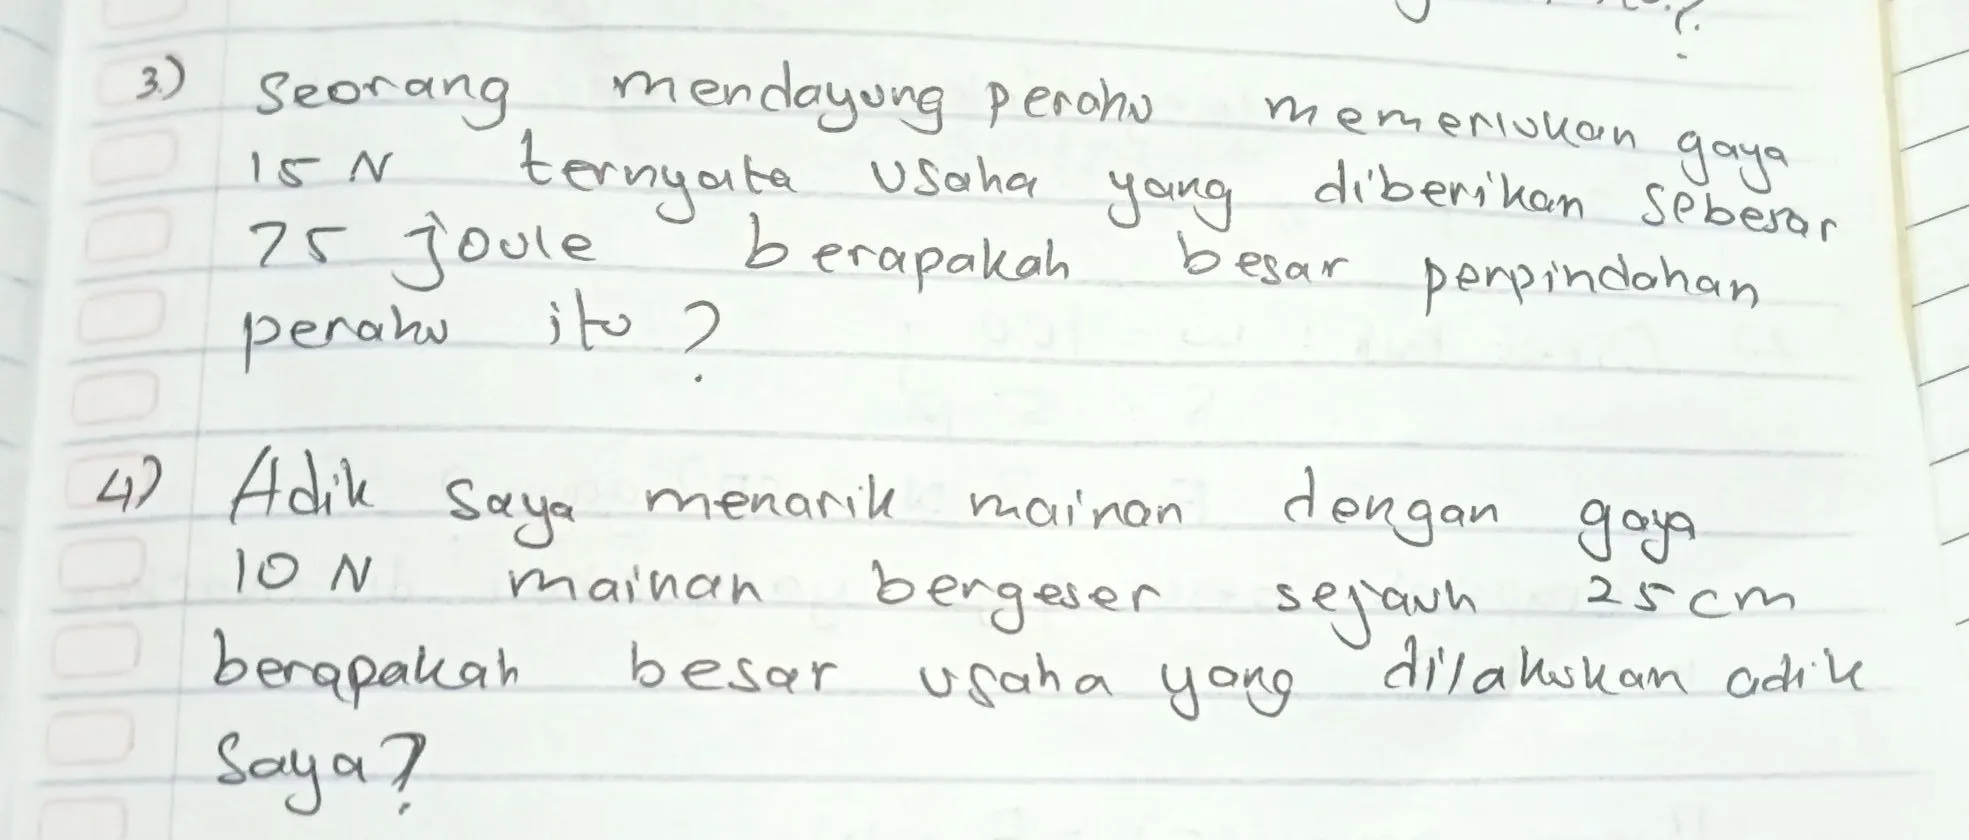 3.) Seorang mendayung perahu memerlukan gaya
15 N ternyata usaha yang diberikan sebesar
75 joule berapakah besar perpindahan
perahu itu?
4) Adik saya menarik mainan dengan gaya
10 N mainan bergeser sejauh 25 cm
berapakah besar usaha yang dilakukan adik
saya?